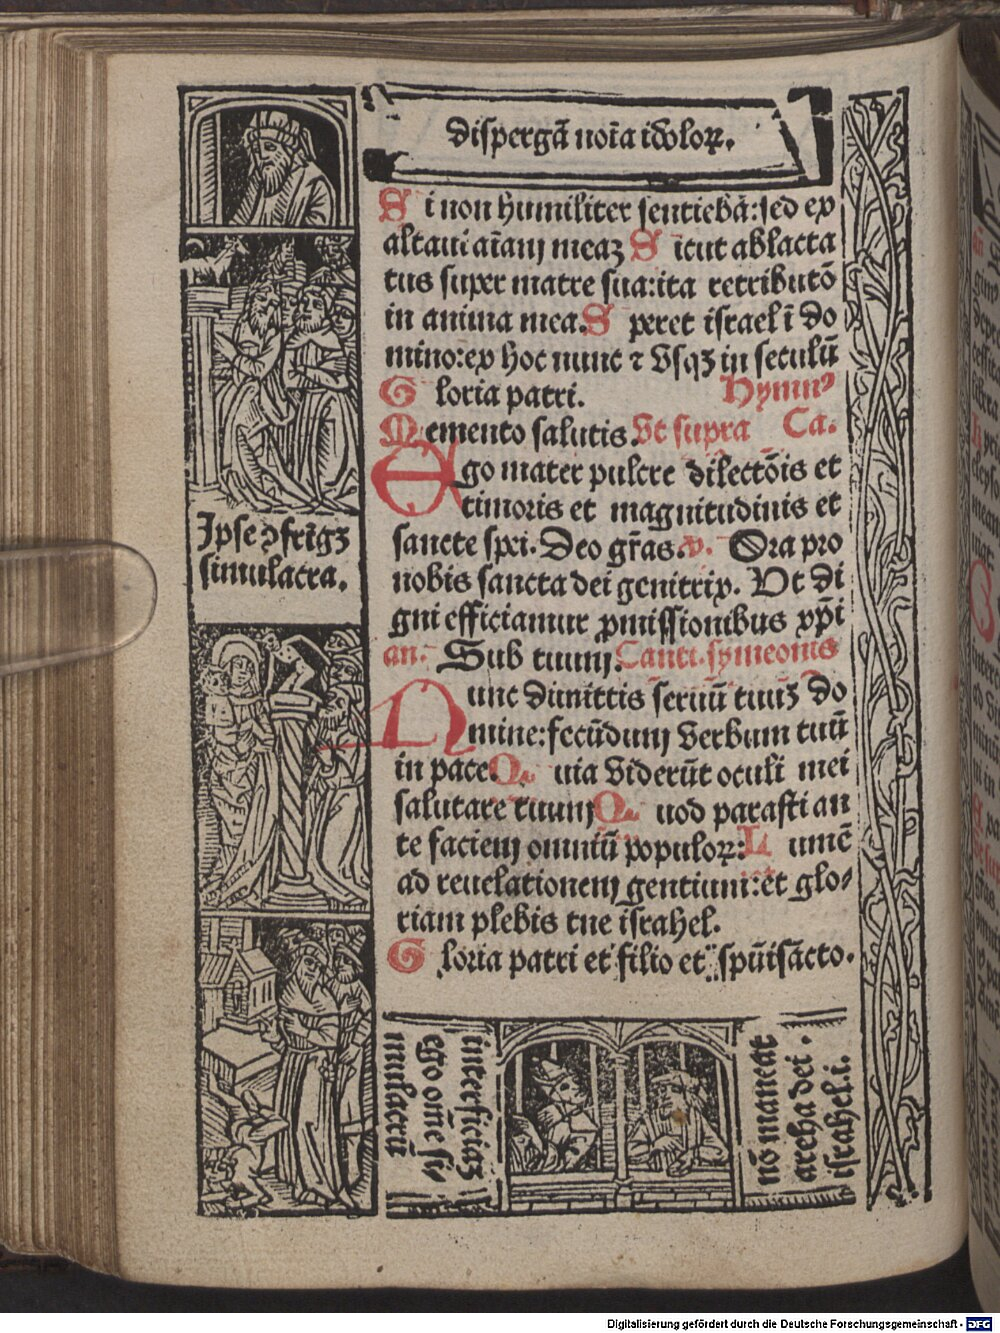 dispergā noīa idoloꝝ.
Si non humiliter sentiebā: sed ex
altaui aīam meaꝫ Sicut ablacta
tus super matre sua: ita retributō
in anima mea. Speret israel ī do
mino: ex hoc nunc ⁊ vsqꝫ in seculū
Gloria patri. Hymnꝰ
Memento salutis. Vt supra Ca.
Ego mater pulcre dilectōis et
timoris et magnitudinis et
sancte spei. Deo gr̄as. v. Ora pro
nobis sancta dei genitrix. Vt di
gni efficiamur ꝓmissionibus xp̄i
an. Sub tuum. Canti. symeonis
Nunc dimittis seruū tuuꝫ do
mine: secūdum verbum tuū
in pace. Quia viderūt oculi mei
salutare tuum Quod parasti an
te faciem omniū populoꝝ: Lumē
ad reuelationem gentium: et glo⸗
riam plebis tue israhel.
Gloria patri et filio et spūisācto.
Ipse ꝯfrīgꝫ
simulacra.
interficiaꝫ
ego om̄e si⸗
mulacrū
nō maneāt
archa dei .
israhel. i.
an
Digitalisierung gefördert durch die Deutsche Forschungsgemeinschaft - DFG